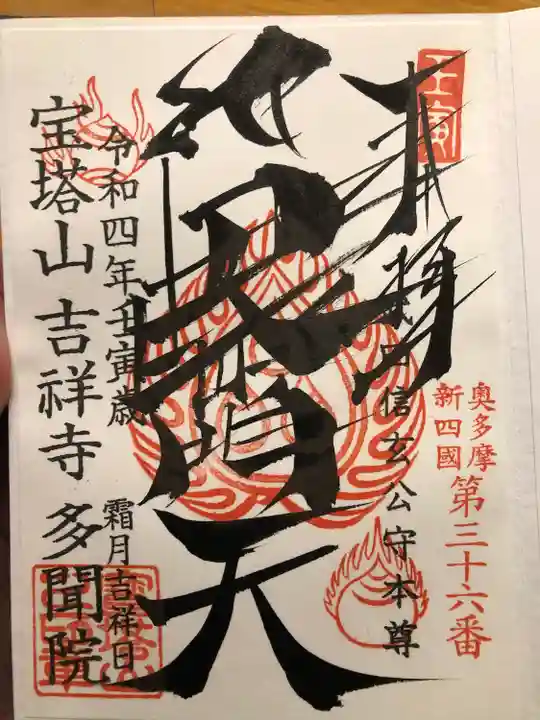 壬寅
奉拝
信玄公守本尊
奥多摩
新四國
第三十六番
毘沙門天
令和四年壬寅歳
霜月吉祥日
宝塔山 吉祥寺 多聞院